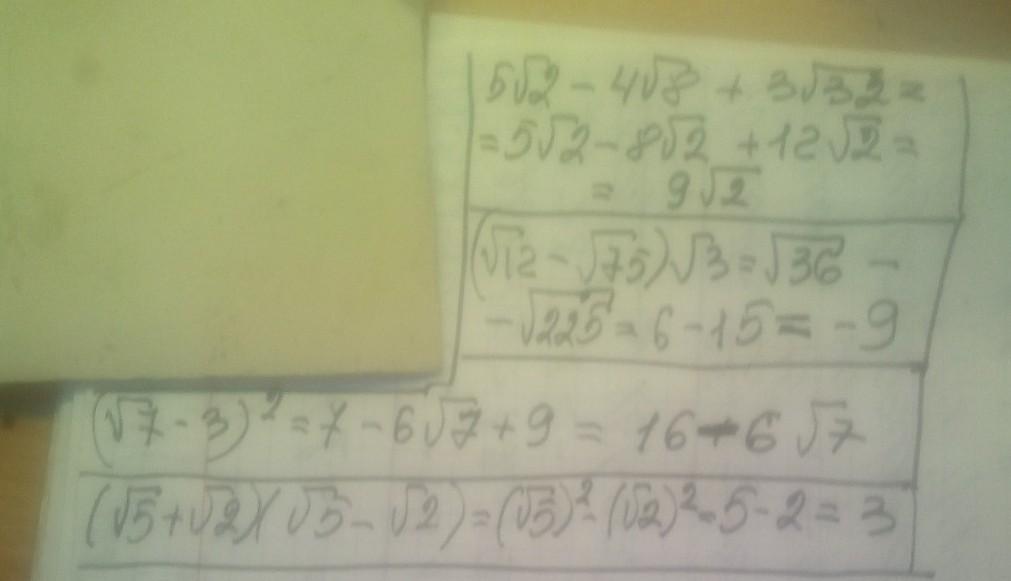 5√2 - 4√8 + 3√32 =
= 5√2 - 8√2 + 12√2 =
= 9√2
(√12 - √75)√3 = √36 -
- √225 = 6 - 15 = -9
(√7 - 3)² = 7 - 6√7 + 9 = 16 - 6√7
(√5 + √2)(√5 - √2) = (√5)² - (√2)² = 5 - 2 = 3